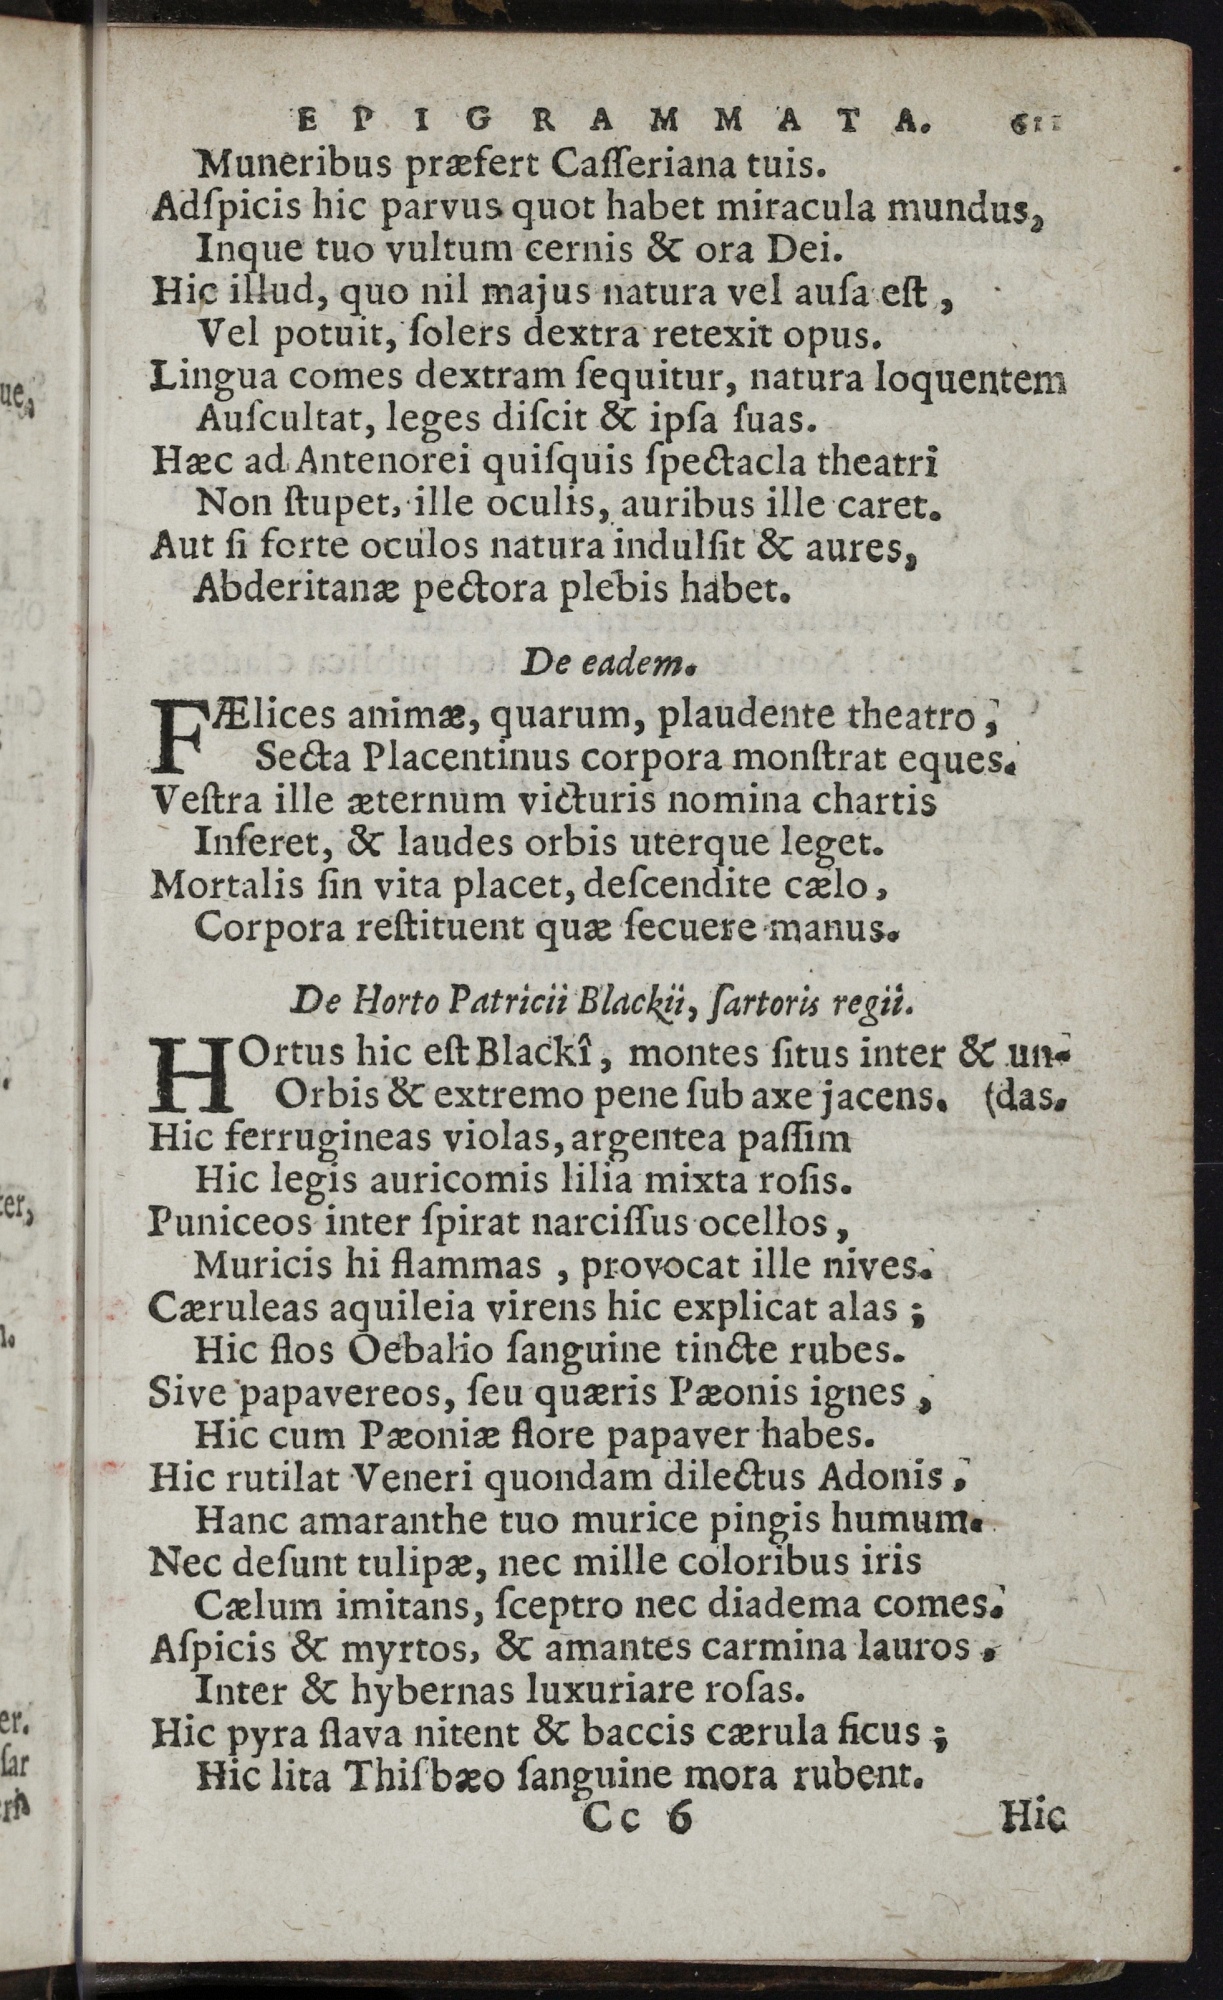 EPIGRAMMATA. 611
Muneribus præfert Caſſeriana tuis.
Adſpicis hic parvus quot habet miracula mundus,
Inque tuo vultum cernis & ora Dei.
Hic illud, quo nil majus natura vel auſa eſt,
Vel potuit, ſolers dextra retexit opus.
Lingua comes dextram ſequitur, natura loquentem
Auſcultat, leges diſcit & ipſa ſuas.
Hæc ad Antenorei quiſquis ſpectacla theatri
Non ſtupet, ille oculis, auribus ille caret.
Aut ſi forte oculos natura indulſit & aures,
Abderitanæ pectora plebis habet.
De eadem.
FÆlices animæ, quarum, plaudente theatro,
Secta Placentinus corpora monſtrat eques.
Veſtra ille æternum victuris nomina chartis
Inferet, & laudes orbis uterque leget.
Mortalis ſin vita placet, deſcendite cælo,
Corpora reſtituent quæ ſecuere manus.
De Horto Patricii Blackii, ſartoris regii.
HOrtus hic eſt Blackî, montes ſitus inter & un-
Orbis & extremo pene ſub axe jacens. (das.
Hic ferrugineas violas, argentea paſſim
Hic legis auricomis lilia mixta roſis.
Puniceos inter ſpirat narciſſus ocellos,
Muricis hi flammas, provocat ille nives.
Cæruleas aquileia virens hic explicat alas;
Hic flos Oebalio ſanguine tincte rubes.
Sive papavereos, ſeu quæris Pæonis ignes,
Hic cum Pæoniæ flore papaver habes.
Hic rutilat Veneri quondam dilectus Adonis,
Hanc amaranthe tuo murice pingis humum.
Nec deſunt tulipæ, nec mille coloribus iris
Cælum imitans, ſceptro nec diadema comes.
Aſpicis & myrtos, & amantes carmina lauros,
Inter & hybernas luxuriare roſas.
Hic pyra flava nitent & baccis cærula ficus;
Hic lita Thiſbæo ſanguine mora rubent.
Cc 6 Hic